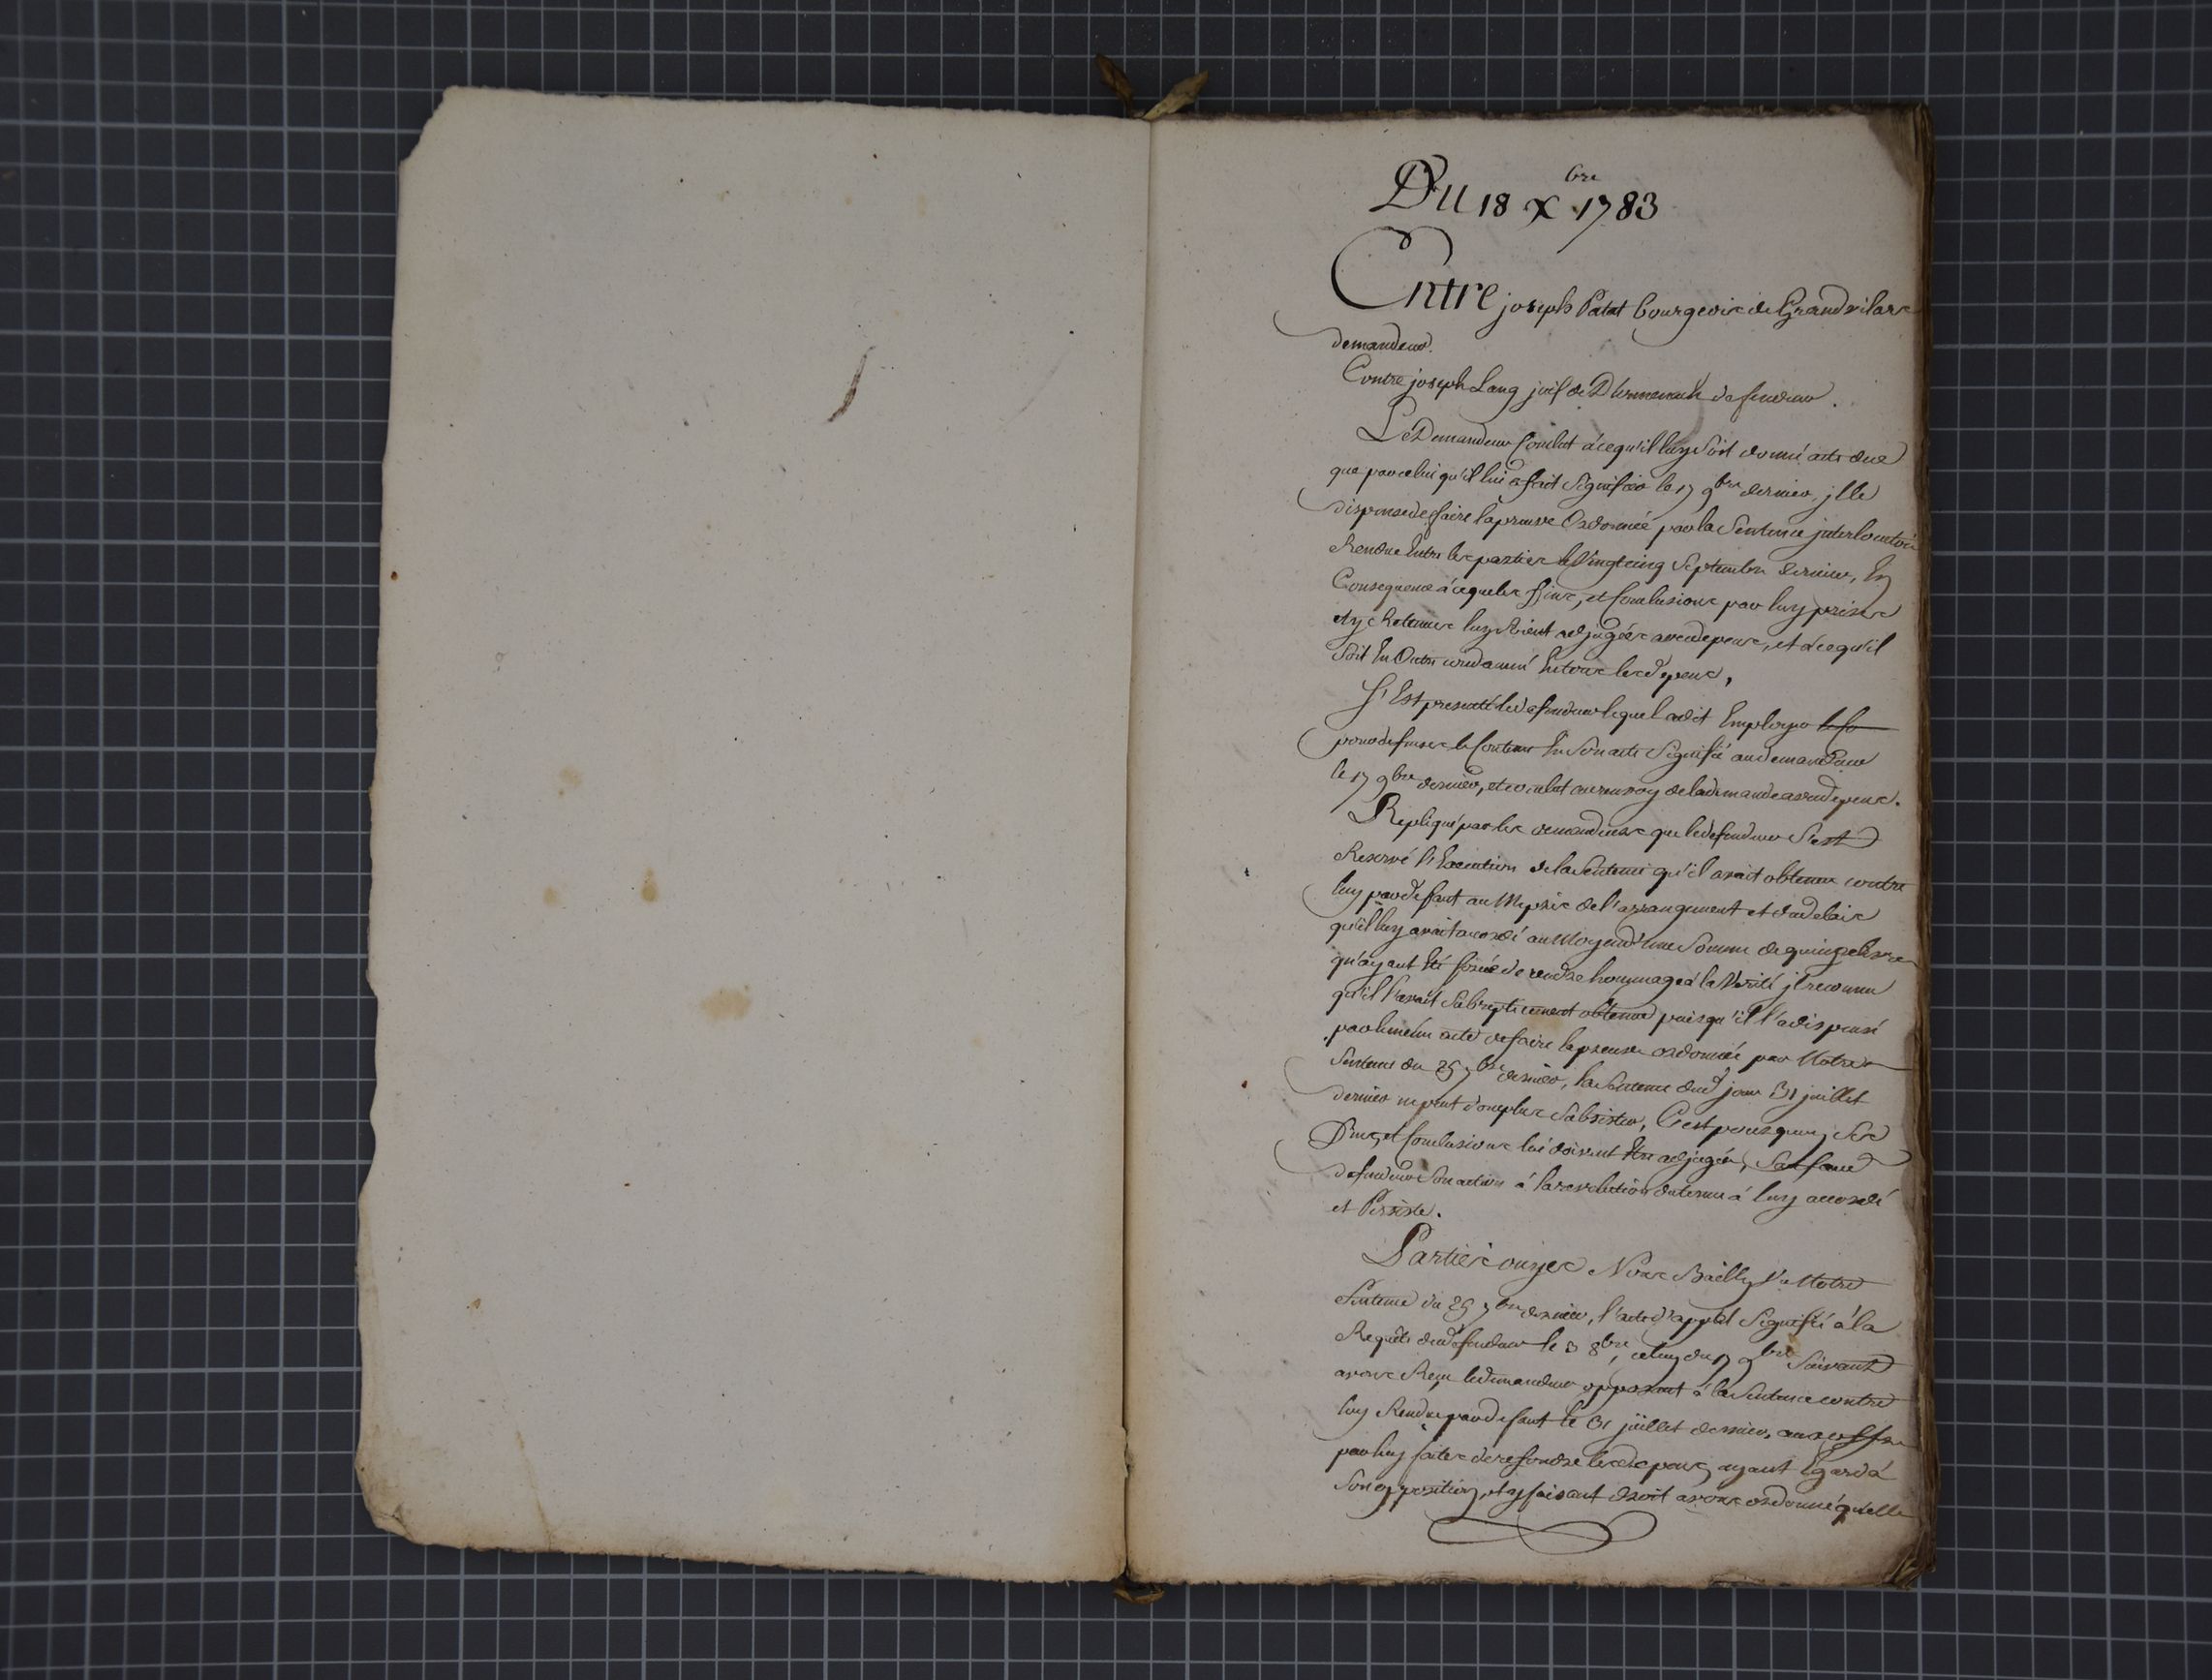 Du 18 Xbre 1783
Entre joseph Patat bourgeois de Grandvilars
demandeur.
Contre joseph Lang juif de Durmenach defendeur.
Le Demandeur Conclut à ce qu'il luy Soit donné acte de ce
que par celui qu'il lui a fait Signifier le 17 9bre dernier, jl le
dispense de faire la preuve Ordonnée par la Sentence jnterlocutoire
Rendue Entre les parties le Vingt cinq Septembre dernier, En
Consequence à ce que les fins, et Conclusions par luy prises
et y Retenues luy Soient adjugées avec depens, et à ce qu'il
Soit En Outre condamné En tous les depens,
S'Est presenté le defendeur lequel a dit Employer le Co
pour defenses le Contenu En Son acte Signifié au demandeur
le 17 9bre dernier, et conclut au renvoy de la demande avec depens.
Repliqué par les demandeurs que le defendeur S'est
Reservé l'Execution de la Sentence qu'il avait obtenue contre
luy par defaut au Mepris de l'arrangement et du delais
qu'il luy avait accordé au Moyen d'Une Somme de quinze livres
qu'ayant Eté forcé de rendre hommage à la Verité jl reconnu
qu'il l'avait Subrepticement obtenue puisqu'il l'a dispensé
par le meme acte de faire la preuve ordonnée par Notre
Sentence du 25 7bre dernier, la Sentence dud jour 31 juillet
dernier ne peut donc plus Subsister, C'est pourquoy Ses
Fins, et Conclusions lui doivent Etre adjugées, Sauf aud
defendeur Son action à la revolution du terme à luy accordé
et Persiste.
Parties ouyes Nous Bailly Vu Notre
Sentence du 25 7bre dernier, l'acte d'appel Signifié à la
Requête du defendeur le 3 8bre, celuy du 17 9bre Suivant
avons Reçu le demandeur opposant à la Sentence contre
luy Rendue par defaut le 31 juillet dernier, aux offres
par luy faites de refondre les depens, ayant Egard à
Son opposition, et y faisant droit avons ordonné qu'elle